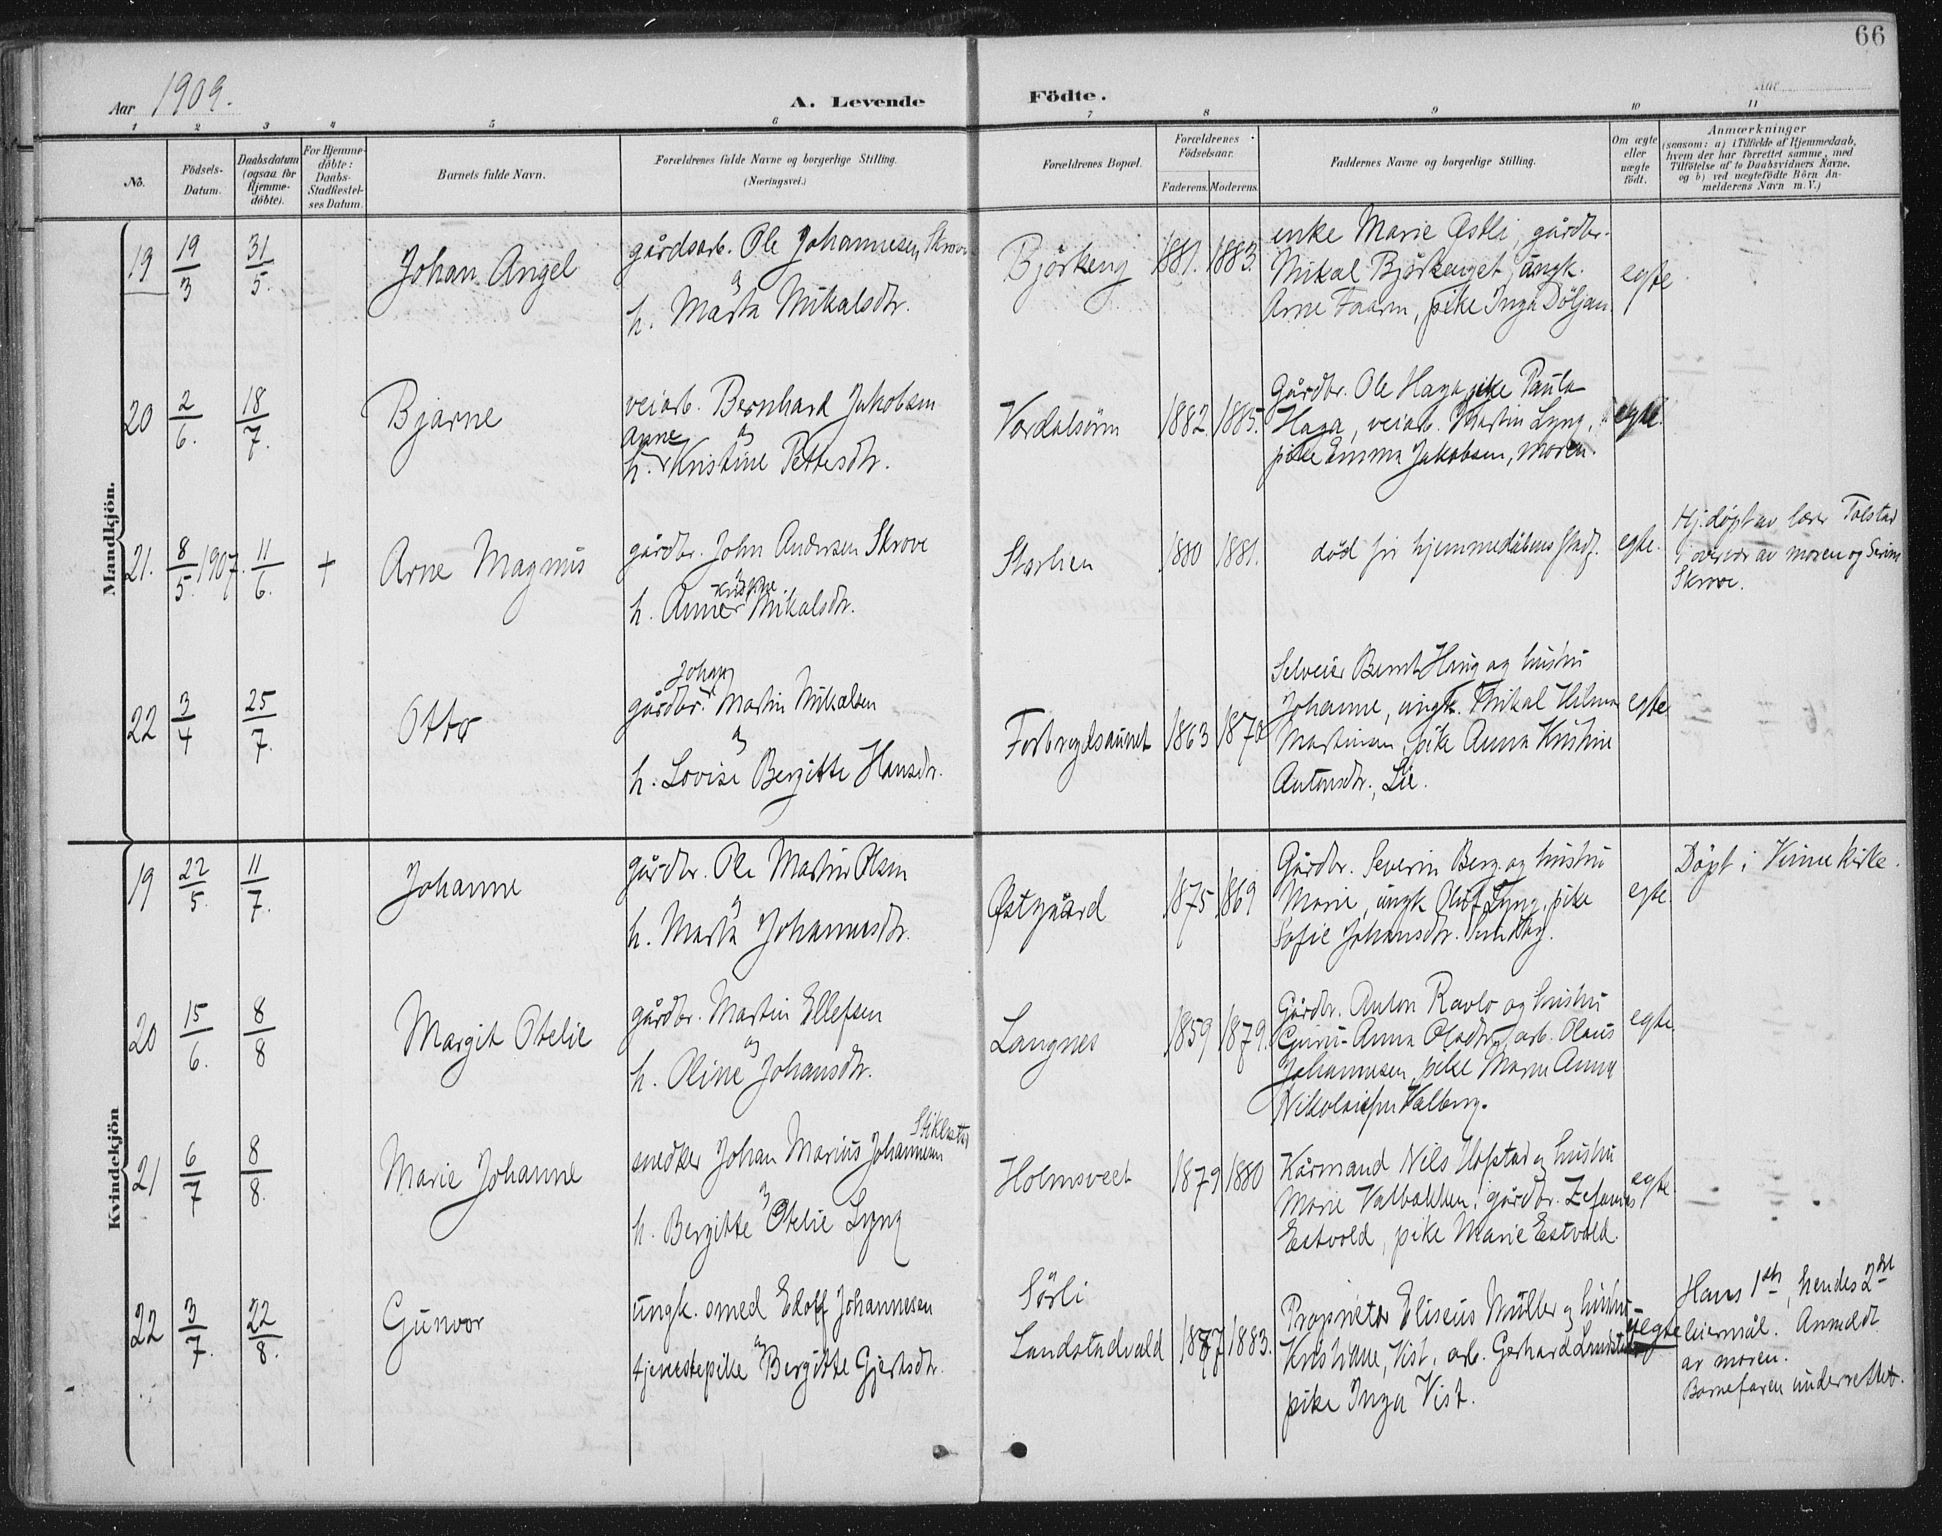 66
Aar 1909.
A. Levende Födte.
Aar
1 2 3 4 5 6 7 8 9 10 11
No.
Födsels-Datum.
Daabsdatum (ogsaa for Hjemme-döbte).
For Hjemme-döbte: Daabs-Stadfæstel-ses Datum.
Barnets fulde Navn.
Forældrenes fulde Navne og borgerlige Stilling.
(Næringsvei.)
Forældrenes Bopæl.
Forældrenes Födselsaar.
Faderens. Moderens.
Faddernes Navne og borgerlige Stilling.
Om ægte eller uægte födt.
Anmærkninger
(saasom: a) i Tilfælde af Hjemmedaab,
hvem der har forrettet samme, med
Tilföielse af to Daabsvidners Navne,
og b) ved uægtefödte Börn An-
melderens Navn m. V.)
Mandkjön.
19 19/3 31/5. Johan Angel
gårdsarb. Ole Johannesen Skrove
og
h. Marta Mikalsdtr.
Björkeng 1881. 1883.
enke Marie Østli, gårdbr.
Mikal Björkenget, ungk.
Arne Faaren, pike Inga Döljan
egte
20 2/6. 18/7. Bjarne
veiarb. Bernhard Jakobsen
Anne og
h. Kristine Pettersdtr.
Værdalsören 1882. 1885.
Gårdbr. Ole Haga, pike Paula
Haga, veiarb. Martin Lyng,
pike Emma Jakobsen, moren.
egte.
21. 8/5. 1907. 11/6. + Arne Magnus
gårdbr. John Andersen Skrove
Kristine
h. Anne Mikalsdtr.
Storlien 1880 1881.
död för hjemmedåbens stadf.
egte.
Hj.döpt av lærer Tolstad
i overvær av moren og
Skrove.
22 3/4 25/7. Otto
Johan
gårdbr. Martin Mikalsen
og
h. Lovise Bergitte Hansdr.
Forbregdsaunet 1863 1870
Selveier Bernt Haug og hustru
Johanne, ungk. Mikal Hilmar
Martinsen, pike Anna Kristine
Antonsdtr., Lie.
egte
Kvindekjön
19 22/5. 11/7. Johanne
gårdbr. Ole Martin Olsen
og
h. Marta Johannesdtr.
Østgård 1875 1869
Gårdbr. Severin Berg og hustru
Marie, ungk Oluf Lyng, pike
Sofie Johansdtr.
egte.
Döpt i Vinne kirke.
20 15/6. 8/8 Margit Otelie
gårdbr. Martin Ellefsen
og
h. Oline Johansdtr.
Langnes 1859 1879.
Gårdbr. Anton Ravlo og hustru
Guru-Anna Olsdtr, arb. Olaus
Johannesen, pike Maren Anna
Valberg.
egte.
21 6/7 8/8. Marie Johanne
Stiklestad
snedker Johan Marius Johannesen
og
h. Bergitte Otelie Lyng
Holmsveet 1879 1880
Kårmand Nils Hofstad og hustru
Marie Valbakken, gårdbr. Zefanias
Estvold, pike Marie Estvold.
egte
22 3/7. 22/8. Gunvor
ungk. smed Edolf Johannesen
og
tjenestepike Bergitte Gjertsdtr.
Sörli
Landstadvald 1887 1883.
Proprietær Eliseus Müller og hustru
Kristiane, Vist, arb. Gerhard Landstad
pike Inga Vist.
uegte
Hans 1ste, hendes 2det
leiermål. Anmeldt
av moren.
Barnefaren underrettet.